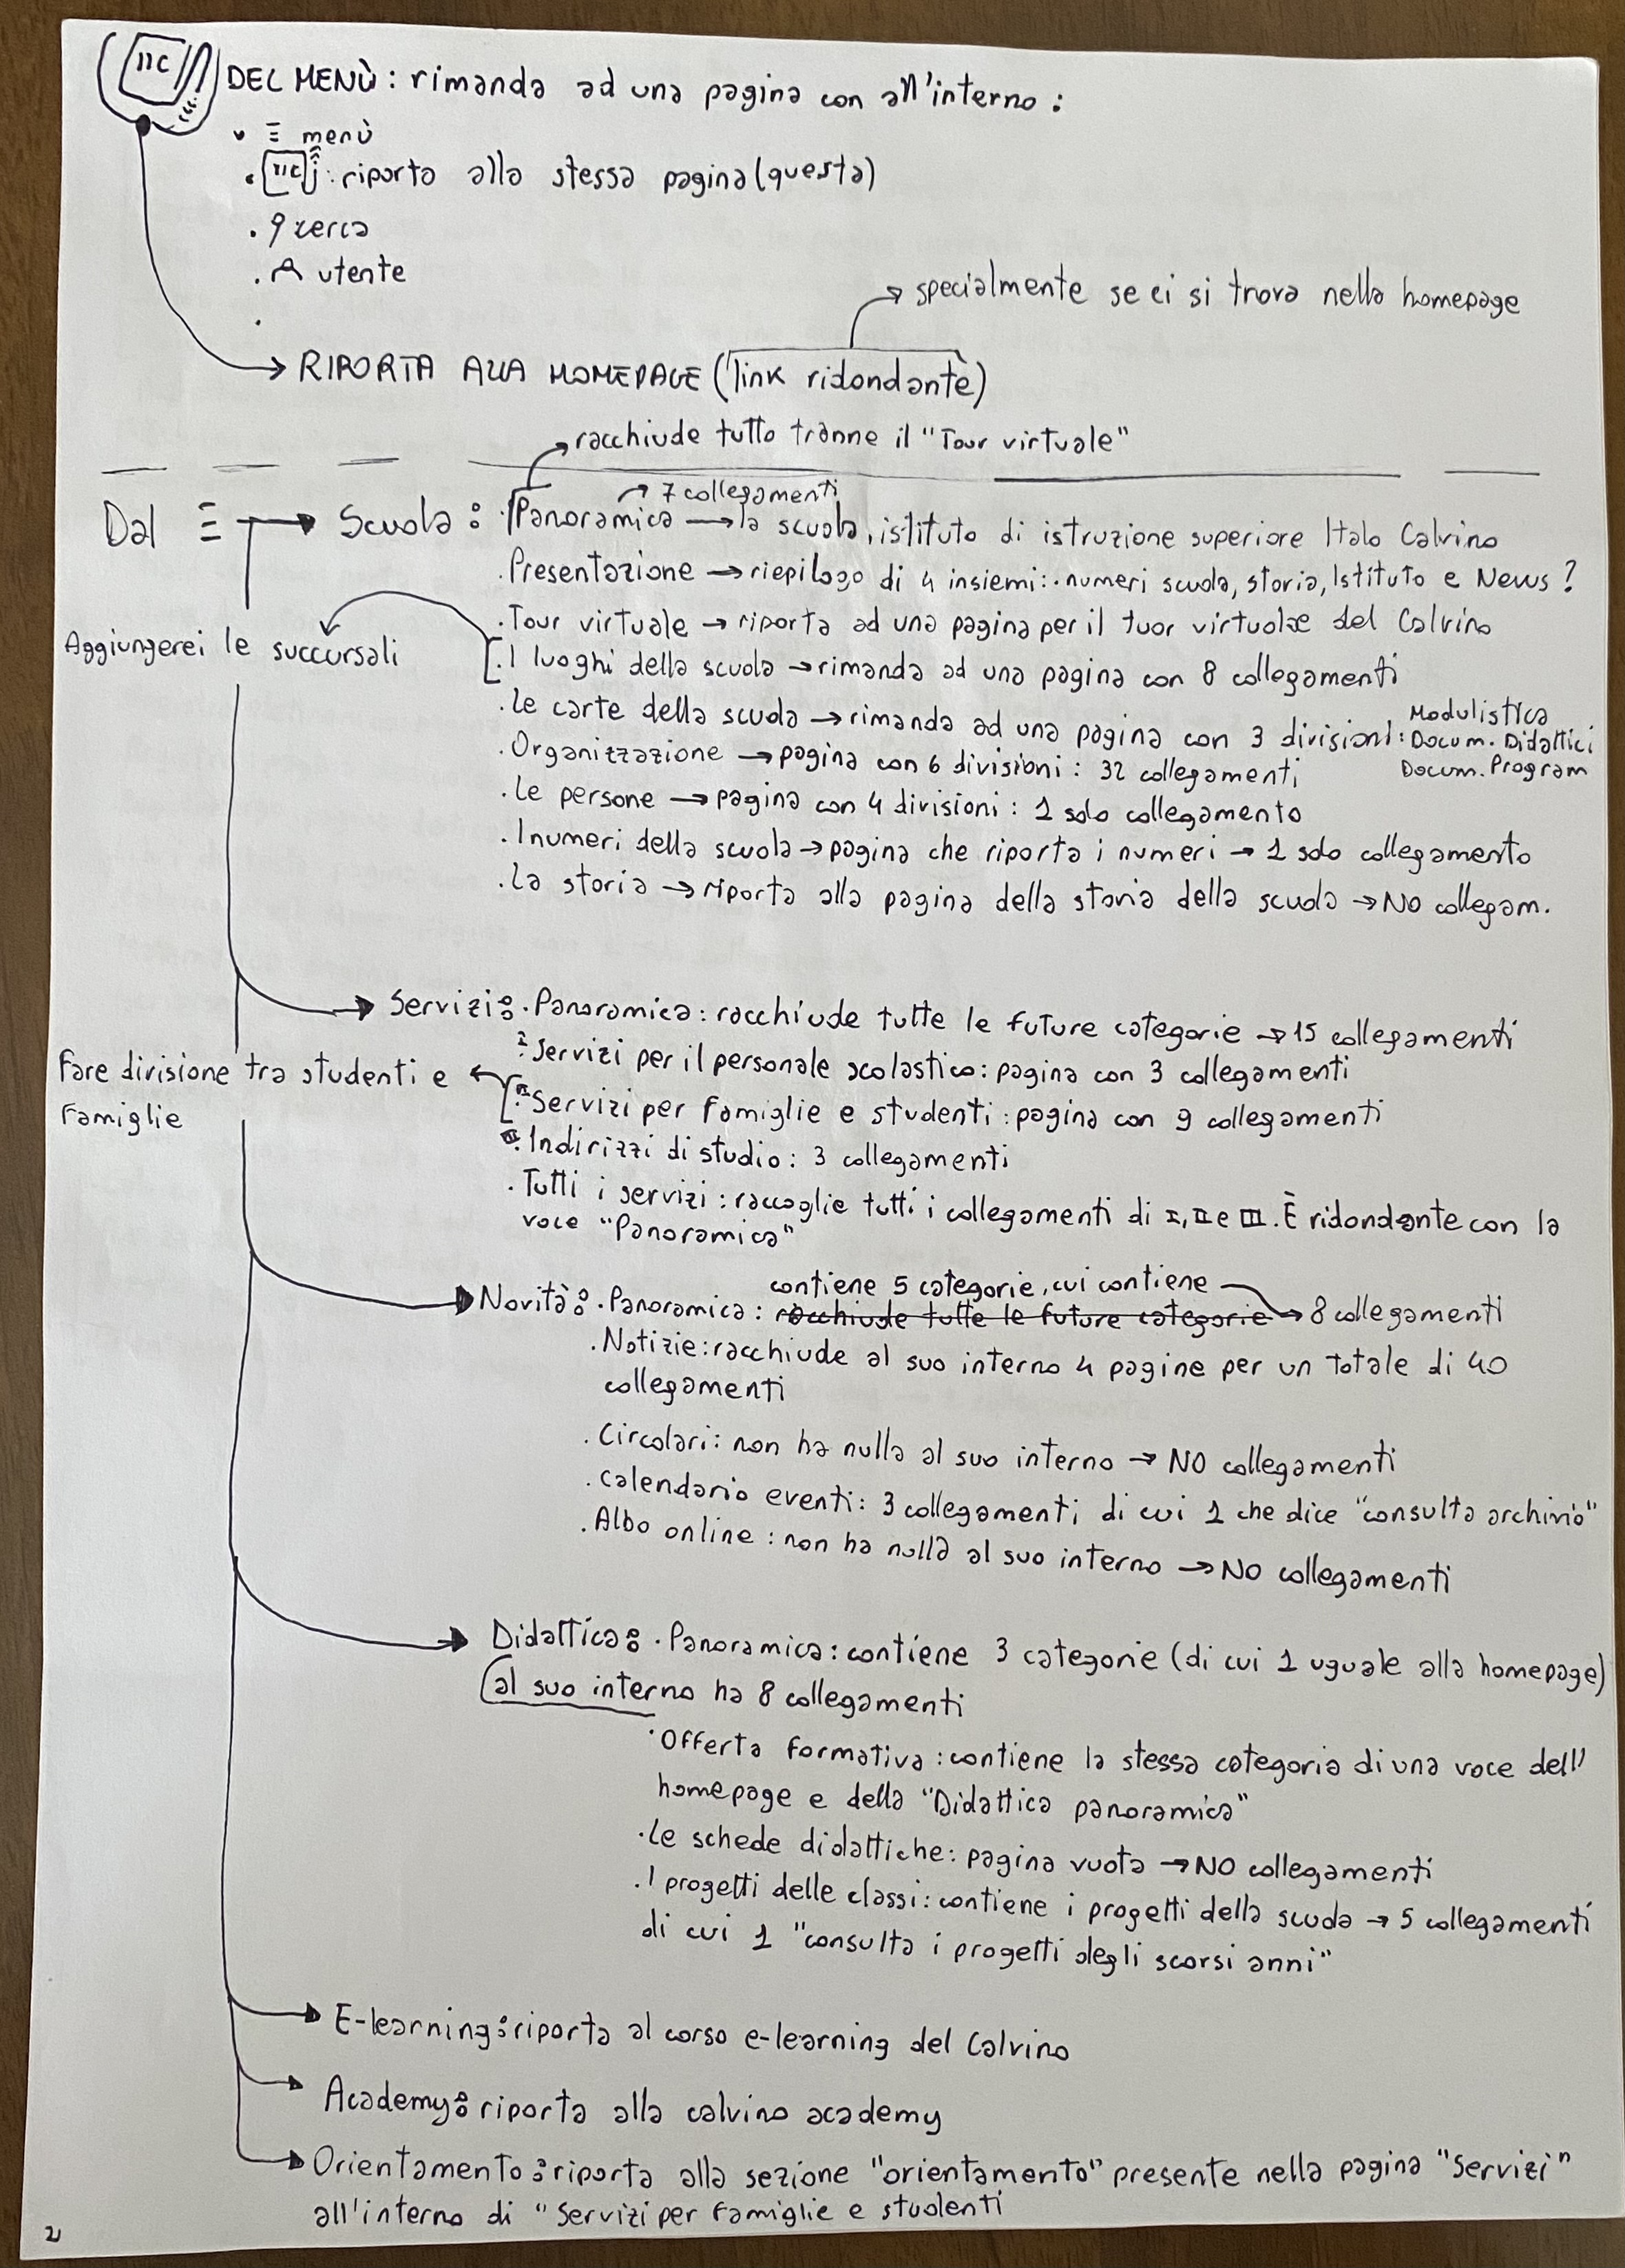 IIC DEL MENÙ: rimanda ad una pagina con all'interno:
• ☰ menù
• IIC : riporta alla stessa pagina (questa)
• cerca
• utente
•
specialmente se ci si trova nella homepage
RIPORTA ALLA HOMEPAGE (link ridondante)
racchiude tutto tranne il "Tour virtuale"
7 collegamenti
Dal ☰ → Scuola: • Panoramica → la scuola, istituto di istruzione superiore Italo Calvino
• Presentazione → riepilogo di 4 insiemi: • numeri scuola, storia, Istituto e News?
• Tour virtuale → riporta ad una pagina per il tuor virtuale del Calvino
Aggiungerei le succursali
• I luoghi della scuola → rimanda ad una pagina con 8 collegamenti
• le carte della scuola → rimanda ad una pagina con 3 divisioni: Modulistica
Docum. Didattici
Docum. Program
• Organizzazione → pagina con 6 divisioni: 32 collegamenti
• le persone → pagina con 4 divisioni: 1 solo collegamento
• I numeri della scuola → pagina che riporta i numeri → 1 solo collegamento
• la storia → riporta alla pagina della storia della scuola → NO collegam.
Servizi: • Panoramica: racchiude tutte le future categorie → 15 collegamenti
I Servizi per il personale scolastico: pagina con 3 collegamenti
Fare divisione tra studenti e
Famiglie
II Servizi per famiglie e studenti: pagina con 9 collegamenti
III Indirizzi di studio: 3 collegamenti
• Tutti i servizi: raccoglie tutti i collegamenti di I, II e III. È ridondante con la
voce "Panoramica"
contiene 5 categorie, cui contiene
Novità: • Panoramica: racchiude tutte le future categorie → 8 collegamenti
• Notizie: racchiude al suo interno 4 pagine per un totale di 40
collegamenti
• Circolari: non ha nulla al suo interno → NO collegamenti
• Calendario eventi: 3 collegamenti di cui 1 che dice "consulta archivio"
• Albo online: non ha nulla al suo interno → NO collegamenti
Didattica: • Panoramica: contiene 3 categorie (di cui 1 uguale alla homepage)
al suo interno ha 8 collegamenti
• Offerta formativa: contiene la stessa categoria di una voce dell'
homepage e della "Didattica panoramica"
• Le schede didattiche: pagina vuota → NO collegamenti
• I progetti delle classi: contiene i progetti della scuola → 5 collegamenti
di cui 1 "consulta i progetti degli scorsi anni"
E-learning: riporta al corso e-learning del Calvino
Academy: riporta alla calvino academy
Orientamento: riporta alla sezione "orientamento" presente nella pagina "Servizi"
all'interno di "Servizi per famiglie e studenti
2